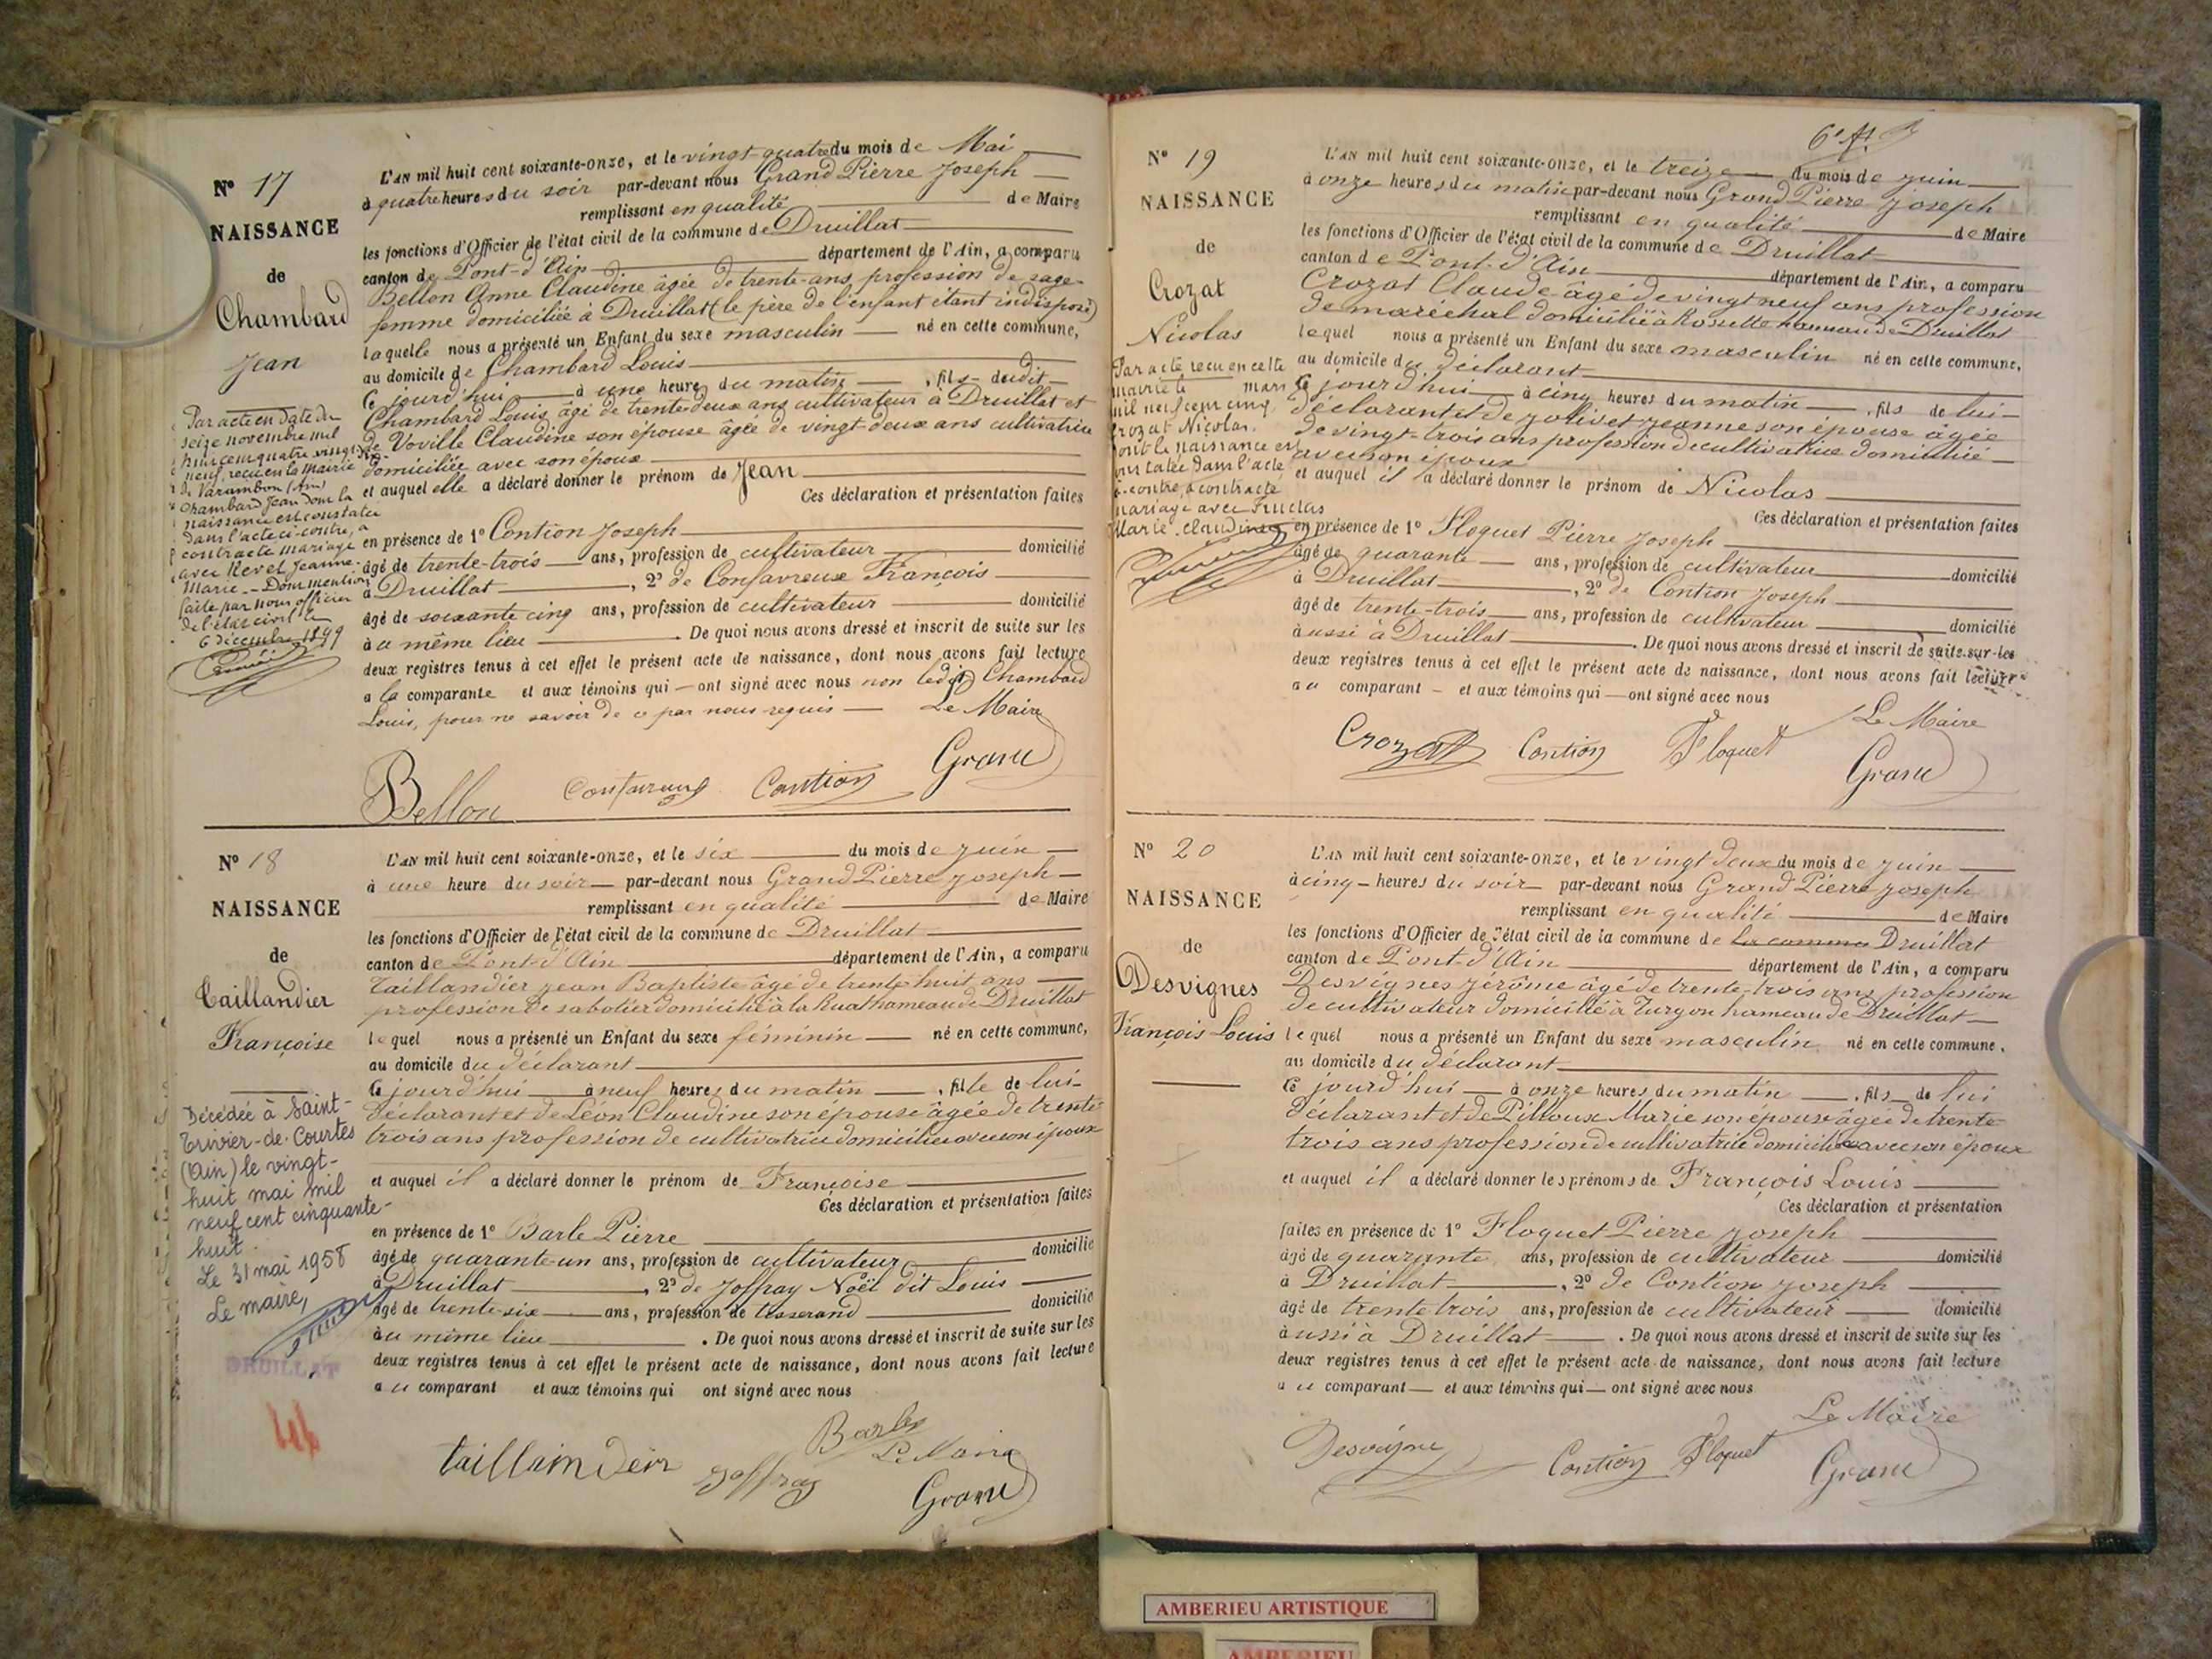 N° 17
NAISSANCE
de
Chambard
Jean
Par acte en date du
seize novembre mil
huit cent quatre vingt dix
neuf, recu en la mairie
de Varambon (Ain)
Chambard Jean dont la
naissance est constatée
dans l'acte ci-contre, a
contracté mariage
avec Revel Jeanne
Marie - Dont mention
faite par nous officier
de l'état civil le
6 décembre 1899
L'AN mil huit cent soixante-onze, et le vingt-quatre du mois de Mai
à quatre heures du soir par-devant nous Grand Pierre Joseph
remplissant en qualité de Maire
les fonctions d'Officier de l'état civil de la commune de Druillat
canton de Pont-d'Ain département de l'Ain, a comparu
Bellon Anne Claudine âgée de trente-ans profession de sage-
femme domiciliée à Druillat (le père de l'enfant étant indisposé)
laquelle nous a présenté un Enfant du sexe masculin né en cette commune,
au domicile de Chambard Louis
Ce jourd'hui à une heure du matin, fils dudit
Chambard Louis âgé de trente-deux ans cultivateur à Druillat et
de Voville Claudine son épouse âgée de vingt-deux ans cultivatrice
domiciliée avec son époux
et auquel elle a déclaré donner le prénom de Jean
Ces déclaration et présentation faites
en présence de 1° Contion Joseph
âgé de trente-trois ans, profession de cultivateur domicilié
à Druillat, 2° de Confavreux François
âgé de soixante cinq ans, profession de cultivateur domicilié
au même lieu. De quoi nous avons dressé et inscrit de suite sur les
deux registres tenus à cet effet le présent acte de naissance, dont nous avons fait lecture
a la comparante et aux témoins qui ont signé avec nous non ledit Chambard
Louis, pour ne savoir de ce par nous requis Le Maire
Bellon Confavreux Contion Grand
N° 18
NAISSANCE
de
Taillandier
Françoise
Décédée à Saint-
Trivier-de-Courtes
(Ain) le vingt-
huit mai mil
neuf cent cinquante-
huit.
Le 31 mai 1958
Le maire,
DRUILLAT
L'AN mil huit cent soixante-onze, et le six du mois de juin
à une heure du soir par-devant nous Grand Pierre Joseph
remplissant en qualité de Maire
les fonctions d'Officier de l'état civil de la commune de Druillat
canton de Pont-d'Ain département de l'Ain, a comparu
Taillandier Jean Baptiste âgé de trente huit ans
profession de sabotier domicilié à la Ruat hameau de Druillat
lequel nous a présenté un Enfant du sexe féminin né en cette commune,
au domicile du déclarant
Ce jourd'hui à neuf heures du matin, fille de lui
déclarant et de Léon Claudine son épouse âgée de trente
trois ans profession de cultivatrice domiciliée avec son époux
et auquel il a déclaré donner le prénom de Françoise
Ces déclaration et présentation faites
en présence de 1° Barle Pierre
âgé de quarante-un ans, profession de cultivateur domicilié
à Druillat, 2° de Joffray Noël dit Louis
âgé de trente-six ans, profession de tisserand domicilié
au même lieu. De quoi nous avons dressé et inscrit de suite sur les
deux registres tenus à cet effet le présent acte de naissance, dont nous avons fait lecture
au comparant et aux témoins qui ont signé avec nous
Barle
Le Maire
Joffray
Grand
N° 19
NAISSANCE
de
Crozat
Nicolas
Par acte recu en cette
mairie le mars
mil neuf cent cinq
Crozat Nicolas
dont la naissance est
constatée dans l'acte
ci-contre, a contracté
mariage avec
Marie Claudine
L'AN mil huit cent soixante-onze, et le treize du mois de juin
à onze heures du matin par-devant nous Grand Pierre Joseph
remplissant en qualité de Maire
les fonctions d'Officier de l'état civil de la commune de Druillat
canton de Pont-d'Ain département de l'Ain, a comparu
Crozat Claude âgé de vingt neuf ans profession
de maréchal domicilié à Rossette hameau de Druillat
lequel nous a présenté un Enfant du sexe masculin né en cette commune,
au domicile du déclarant
Ce jourd'hui à cinq heures du matin, fils de lui
déclarant et de Jolivet Jeanne son épouse âgée
de vingt-trois ans profession de cultivatrice domiciliée
avec son époux
et auquel il a déclaré donner le prénom de Nicolas
Ces déclaration et présentation faites
en présence de 1° Floquet Pierre Joseph
âgé de quarante ans, profession de cultivateur domicilié
à Druillat, 2° de Contion Joseph
âgé de trente-trois ans, profession de cultivateur domicilié
aussi à Druillat. De quoi nous avons dressé et inscrit de suite sur les
deux registres tenus à cet effet le présent acte de naissance, dont nous avons fait lecture
au comparant et aux témoins qui ont signé avec nous
Le Maire
Crozat Contion Floquet Grand
N° 20
NAISSANCE
de
Desvignes
François Louis
L'AN mil huit cent soixante-onze, et le vingt deux du mois de juin
à cinq heures du soir par-devant nous Grand Pierre Joseph
remplissant en qualité de Maire
les fonctions d'Officier de l'état civil de la commune de la commune Druillat
canton de Pont-d'Ain département de l'Ain, a comparu
Desvignes Jérôme âgé de trente-trois ans profession
de cultivateur domicilié à Turgon hameau de Druillat
lequel nous a présenté un Enfant du sexe masculin né en cette commune,
au domicile du déclarant
Ce jourd'hui à onze heures du matin, fils de lui
déclarant et de Pilloux Marie son épouse âgée de trente
trois ans profession de cultivatrice domiciliée avec son époux
et auquel il a déclaré donner les prénoms de François Louis
Ces déclaration et présentation
faites en présence de 1° Floquet Pierre Joseph
âgé de quarante ans, profession de cultivateur domicilié
à Druillat, 2° de Contion Joseph
âgé de trente trois ans, profession de cultivateur domicilié
aussi à Druillat. De quoi nous avons dressé et inscrit de suite sur les
deux registres tenus à cet effet le présent acte de naissance, dont nous avons fait lecture
au comparant et aux témoins qui ont signé avec nous
Le Maire
Desvigne Contion Floquet Grand
AMBERIEU ARTISTIQUE
AMBERIEU